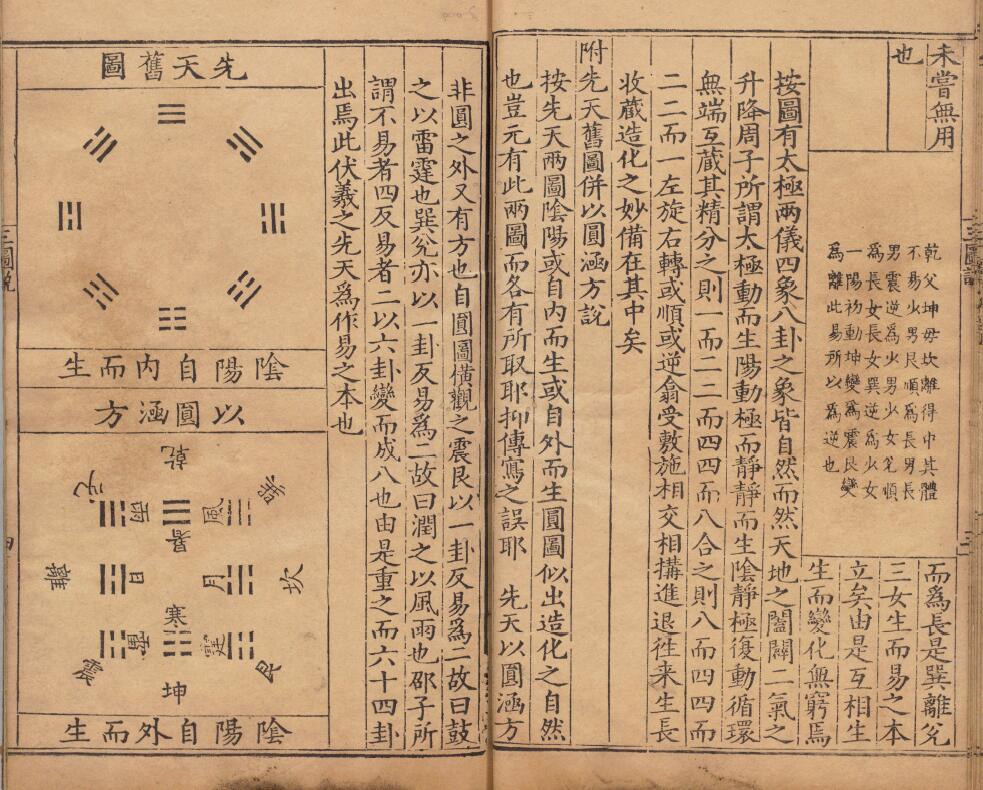 未嘗無用
也
乾父坤母坎離得中其體
不易少男艮順爲長男長
男震逆爲少男少女兌順
爲長女長女巽逆爲少女
一陽初動坤變爲震艮變
爲離此易所以爲逆也
而爲長是巽離兌
三女生而易之本
立矣由是互相生
生而變化無窮焉
按圖有太極兩儀四象八卦之象皆自然而然天地之闔闢二氣之
升降周子所謂太極動而生陽動極而靜靜而生陰靜極復動循環
無端互蔵其精分之則一而二二而四四而八合之則八而四四而
二二而一左旋右轉或順或逆翕受敷施相交相搆進退徃来生長
收蔵造化之妙備在其中矣
附先天舊圖併以圓涵方說
按先天兩圖陰陽或自內而生或自外而生圓圖似出造化之自然
也豈元有此兩圖而各有所取耶抑傳寫之誤耶 先天以圓涵方
三圖說
非圓之外又有方也自圓圖橫觀之震艮以一卦反易爲二故曰鼓
之以雷霆也巽兌亦以一卦反易爲二故曰潤之以風雨也邵子所
謂不易者四反易者二以六卦變而成八也由是重之而六十四卦
出焉此伏羲之先天爲作易之本也
先天舊圖
陰陽自內而生
以圓涵方
乾
兌
巽
雨
風
暑
離
日
月
坎
寒
雷
霆
震
坤
艮
陰陽自外而生
三圖說
四